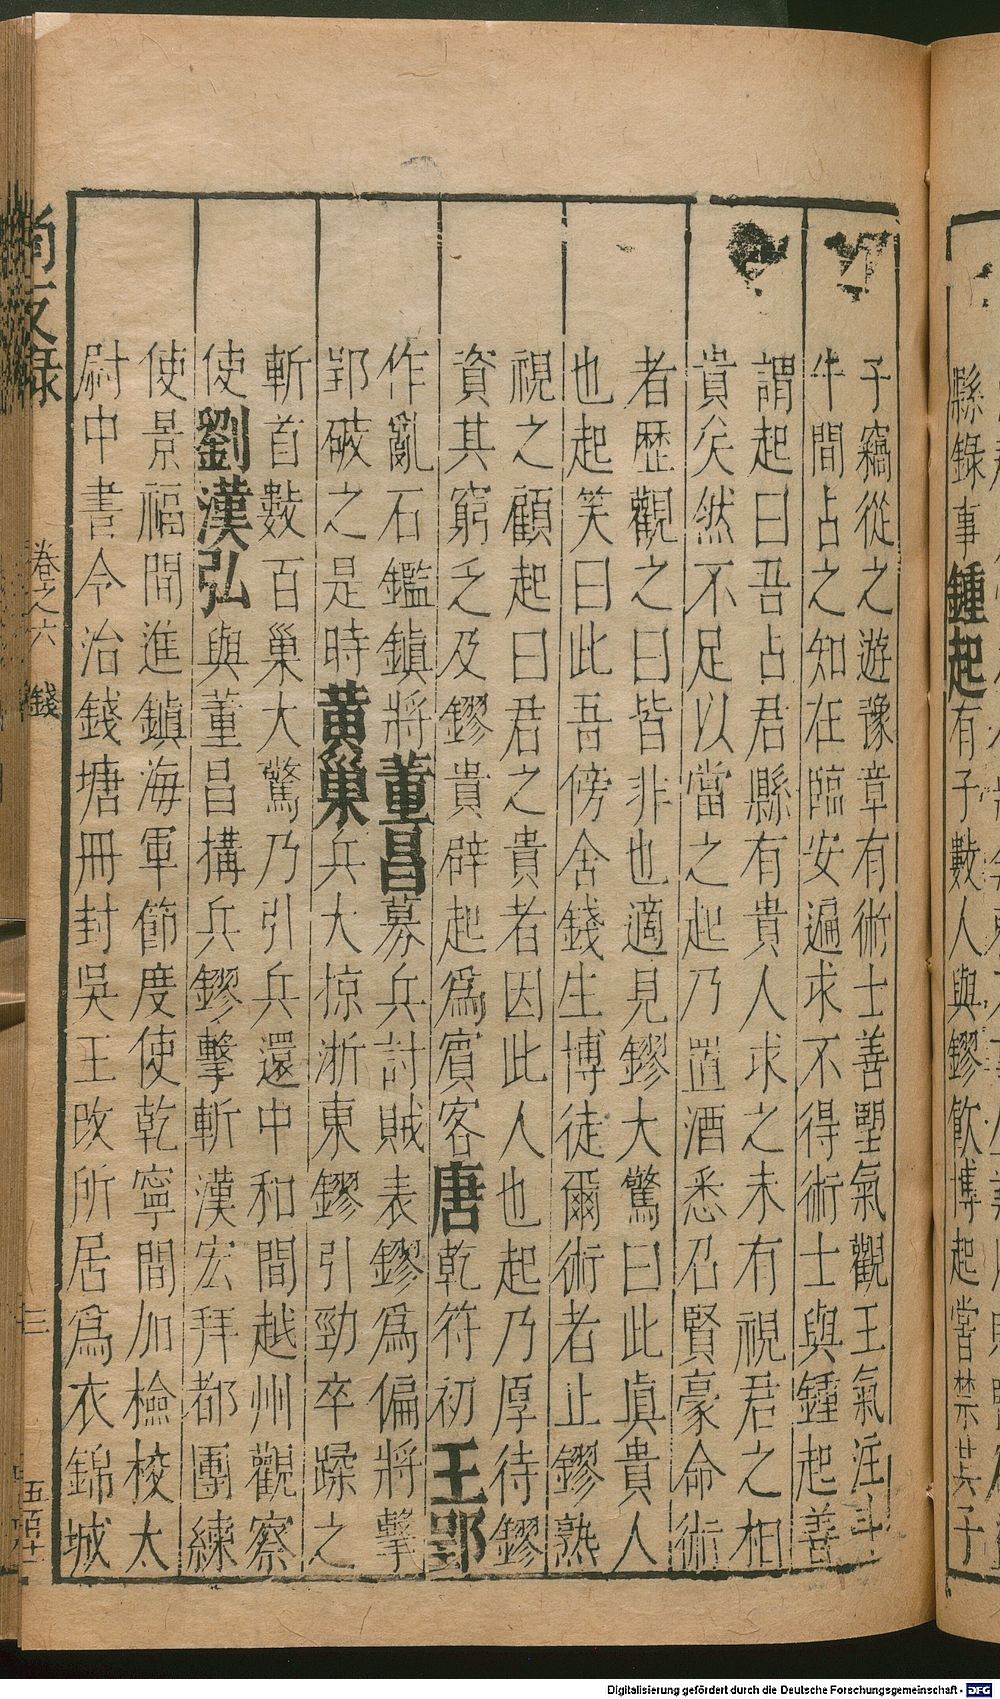 縣錄事鍾起有子數人與鏐飲博起嘗禁其子
子竊從之遊豫章有術士善望氣觀王氣注斗
牛間占之知在臨安遍求不得術士與鍾起善
謂起曰吾占君縣有貴人求之未有視君之相
貴矣然不足以當之起乃置酒悉召賢豪命術
者歷觀之曰皆非也適見鏐大驚曰此真貴人
也起笑曰此吾傍舍錢生博徒爾術者止鏐熟
視之顧起曰君之貴者因此人也起乃厚待鏐
資其窮乏及鏐貴辟起為賓客唐乾符初王郢
作亂石鑑鎮將董昌募兵討賊表鏐為偏將擊
郢破之是時黃巢兵大掠浙東鏐引勁卒蹂之
斬首數百巢大驚乃引兵還中和間越州觀察
使劉漢弘與董昌搆兵鏐擊斬漢宏拜都團練
使景福間進鎮海軍節度使乾寧間加檢校太
尉中書令治錢塘冊封吳王改所居為衣錦城
尚友錄 卷之六 錢 三
Digitalisierung gefördert durch die Deutsche Forschungsgemeinschaft - DFG